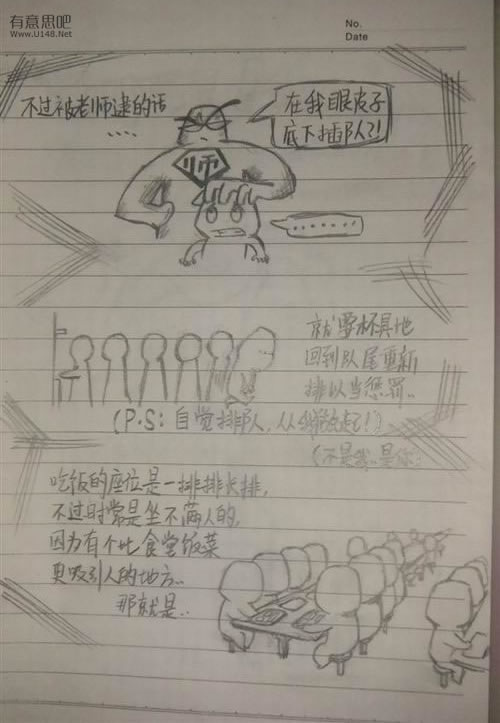 有意思吧
Www.U148.Net
No.
Date
不过被老师逮的话
....
在我眼皮子
底下插队?!
师
.......
就要杯具地
回到队尾重新
排以当惩罚..
(P.S: 自觉排队, 从我做起!)
(不是我..是你
吃饭的座位是一排排长排,
不过时常是坐不满人的,
因为有个比食堂饭菜
更吸引人的地方..
那就是..